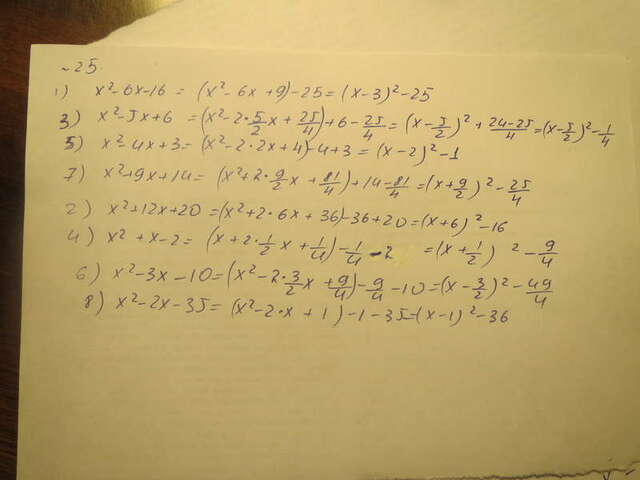 ~25.
1) x²-6x-16 = (x²-6x+9)-25 = (x-3)²-25
3) x²-5x+6 = (x²-2·5/2x+25/4)+6-25/4 = (x-5/2)²+24-25/4 = (x-5/2)²-1/4
5) x²-4x+3 = (x²-2·2x+4)-4+3 = (x-2)²-1
7) x²+9x+14 = (x²+2·9/2x+81/4)+14-81/4 = (x+9/2)²-25/4
2) x²+12x+20 = (x²+2·6x+36)-36+20 = (x+6)²-16
4) x²+x-2 = (x+2·1/2x+1/4)-1/4-2 = (x+1/2)²-9/4
6) x²-3x-10 = (x²-2·3/2x+9/4)-9/4-10 = (x-3/2)²-49/4
8) x²-2x-35 = (x²-2·x+1)-1-35 = (x-1)²-36